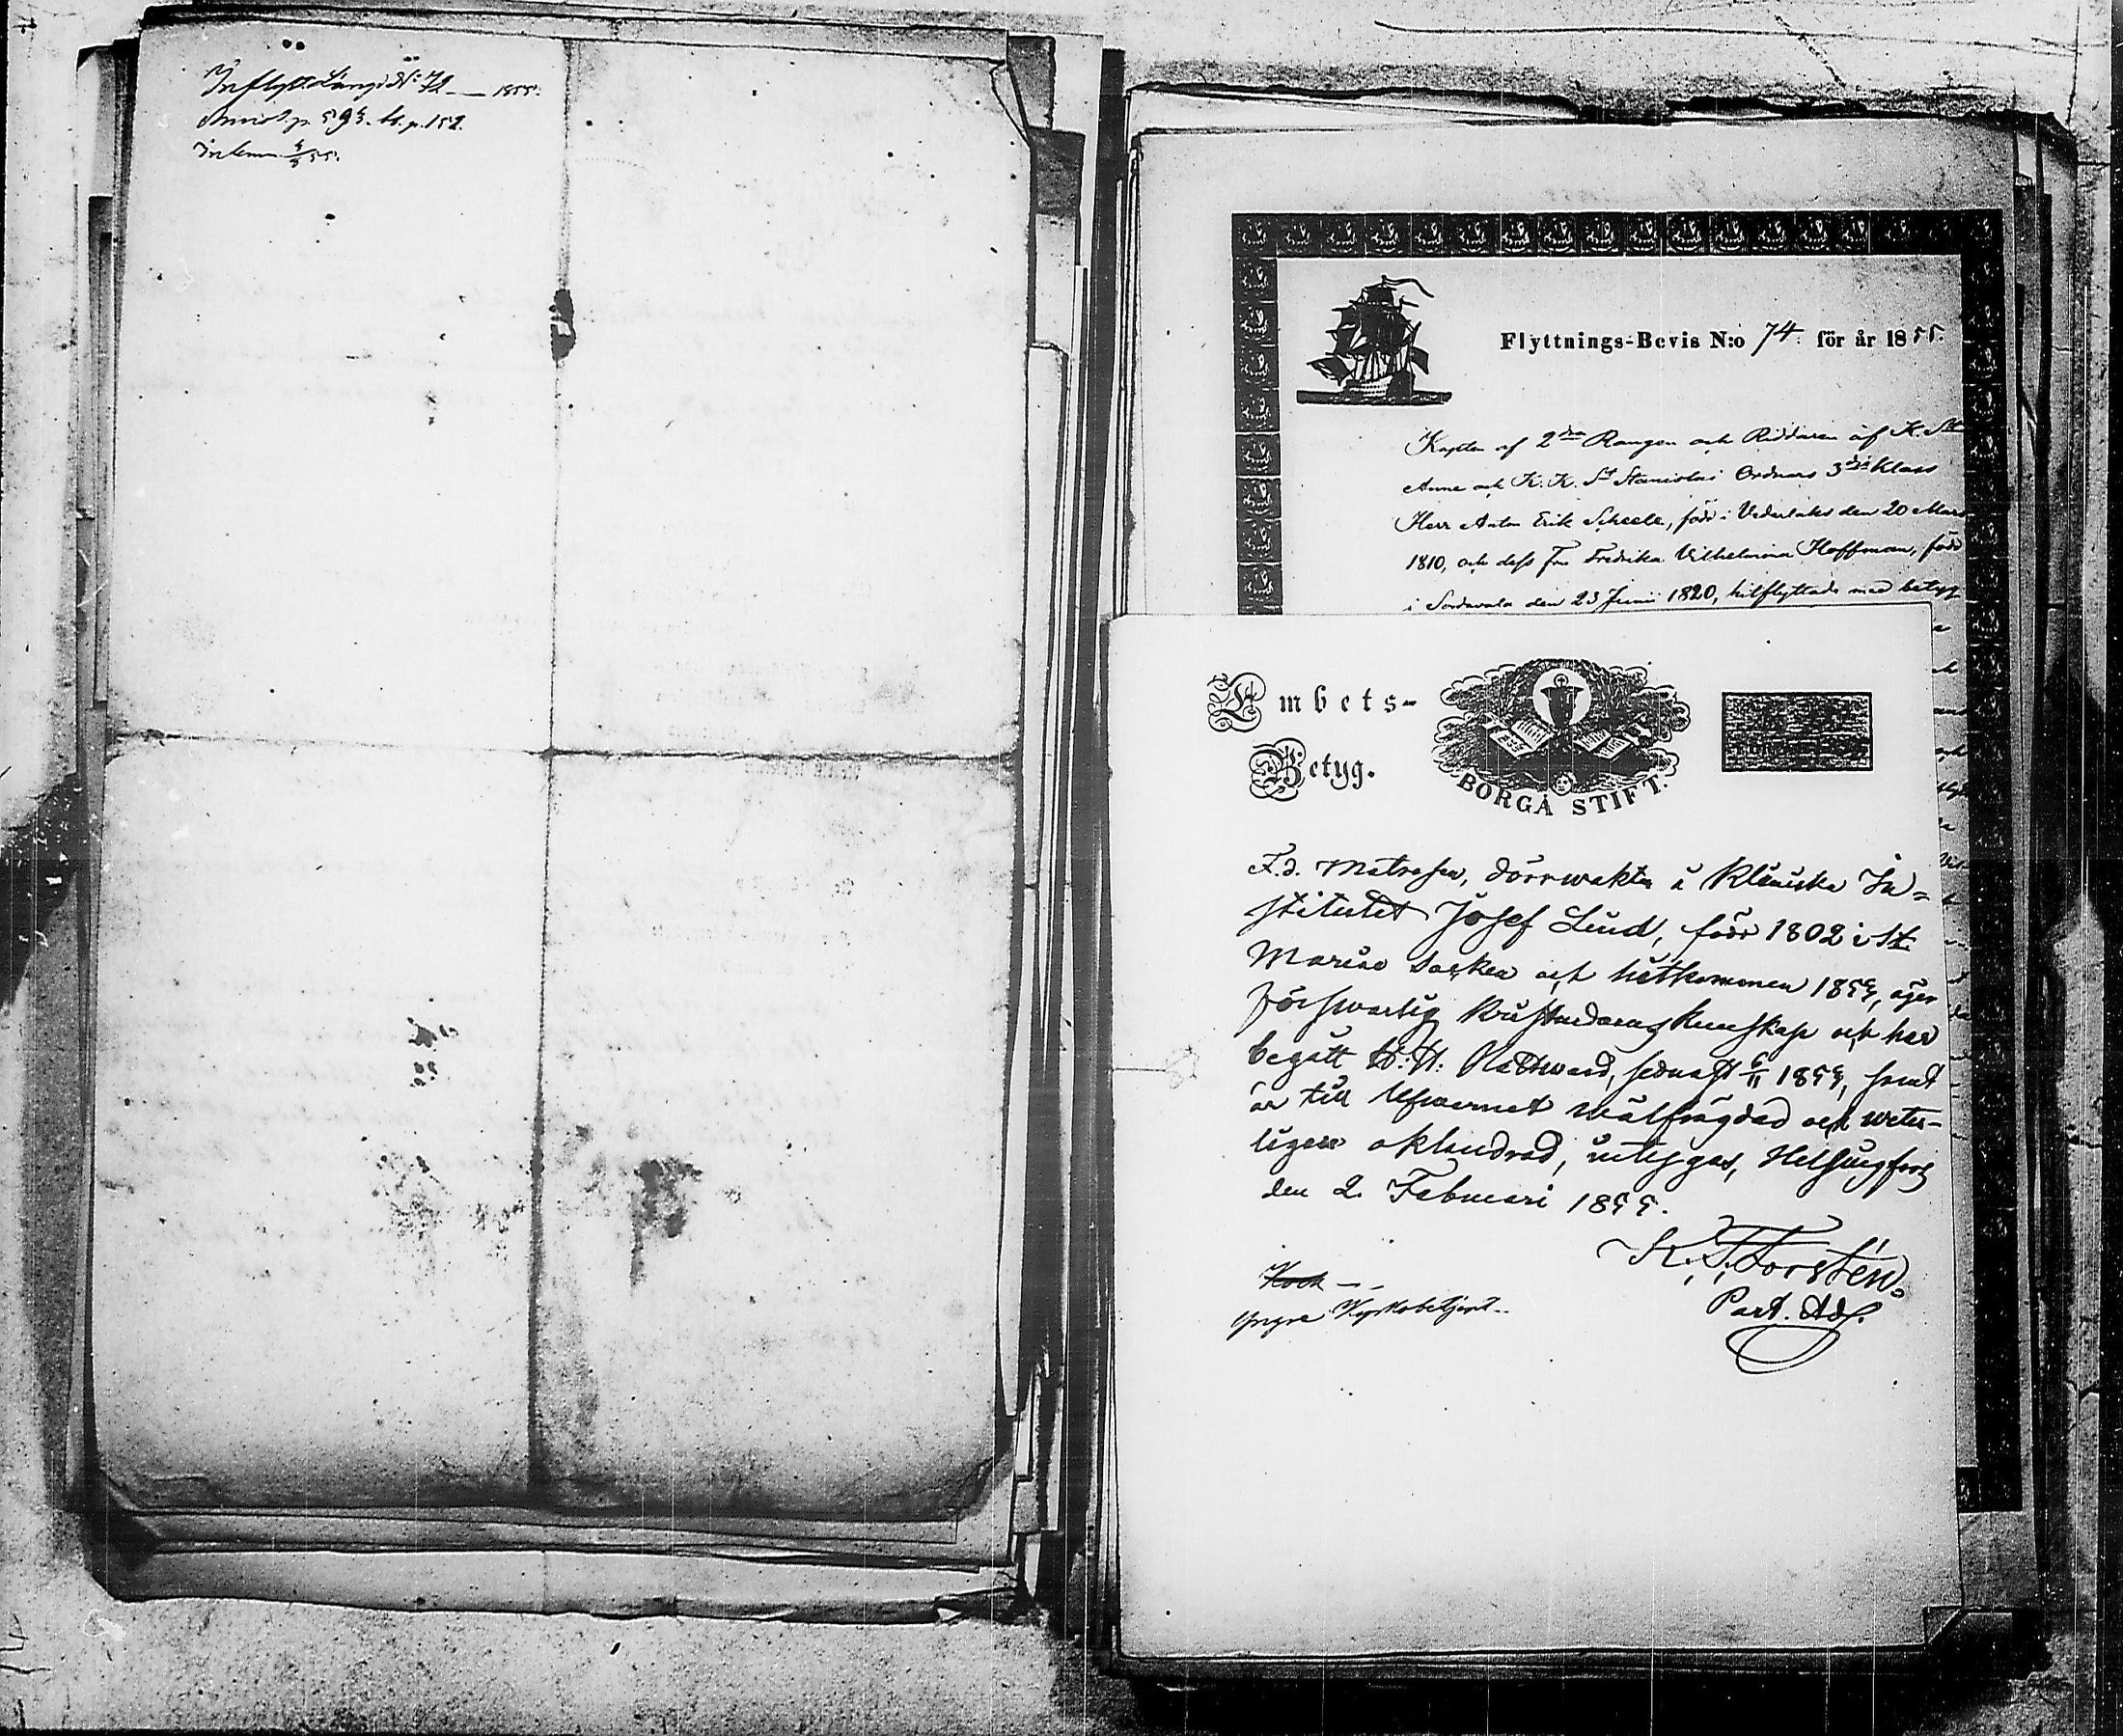 Inflytt. Längd N:o 72 — 1855.
p. 593. p. 152.
Inkom
Flyttnings-Bevis N:o 74. för år 1855.
Kapten af 2dra Rangen och Riddaren af K. St
Anne och K. K. St Stanislai Ordnars 3dje Klass
Herr Anton Erik Scheele, född i Vederlaks den 20 Mars
1810, och dess Fru Fredrika Vilhelmina Hoffman, född
i Sordavala den 23 Junii 1820, hitflyttade med betyg
Embets-
Betyg.
BORGÅ STIFT.
F.d. Matrosen, dörrwakten å Kliniska In=
stitutet Josef Lind, född 1802 i St.
Mariæ Socken och hitkommen 1854, äger
försvarlig Kristendomskunskap och har
begått H. H. Nattward, sednast 6/11 1854, samt
är till lefwernet wälfrägdad och weter-
ligen oklandrad, intygas, Helsingfors
den 2. Februari 1855.
K. T. Forstén.
Past. Adj.
Kock
Yngre Kyrkobetjent.